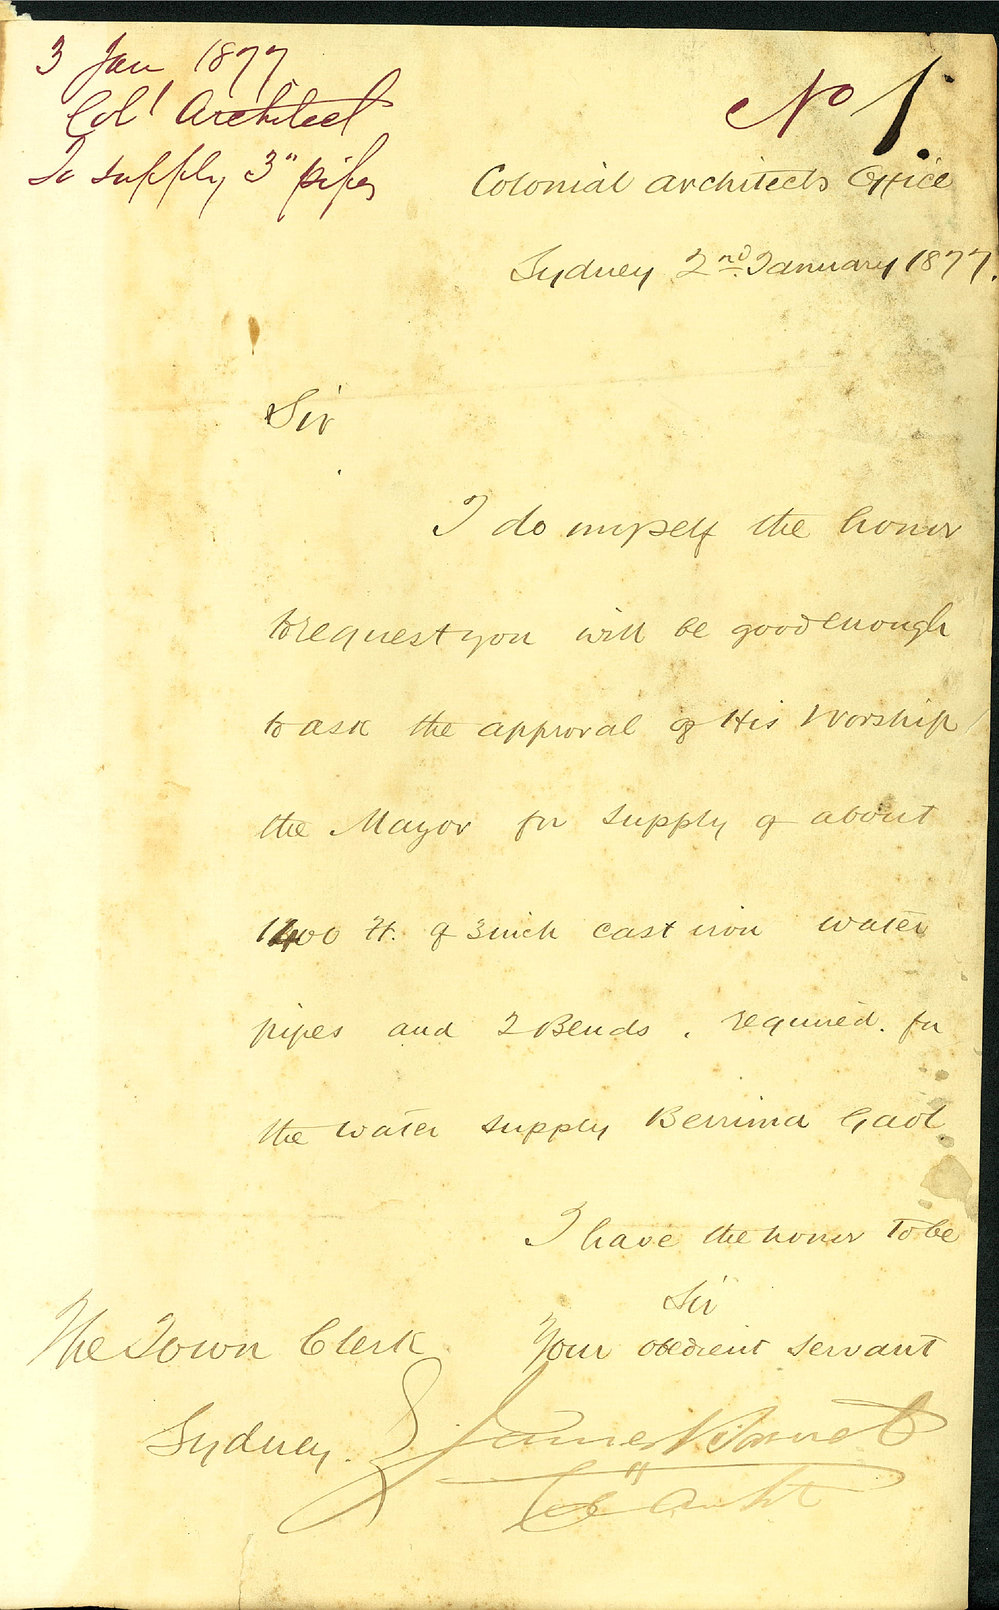 3 Jan 1877
Col' Architect
To supply 3" pipes
No 1.
Colonial Architects Office
Sydney 2nd January 1877.
Sir
I do myself the honor
to request you will be good enough
to ask the approval of His Worship
the Mayor for supply of about
1400 ft. of 3 inch cast iron water
pipes and 2 Bends . required. for
the water supply Berrima Gaol
I have the honor to be
Sir
Your obedient servant
The Town Clerk
Sydney.
James Barnet
Col Archt